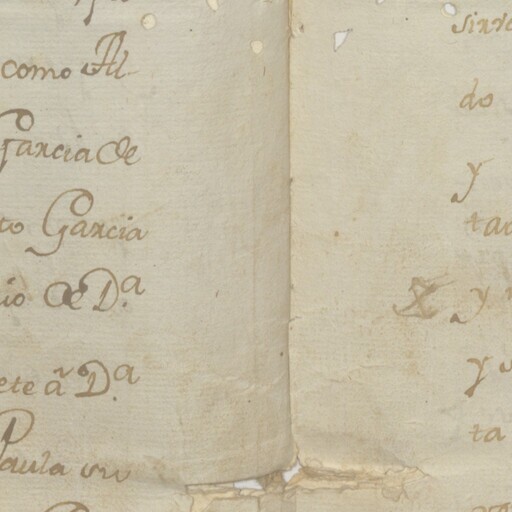 como Al
Garcia de
to Garcia
io de D.ª
ete ã D.ª
Paula un
do
y
y
y
ta